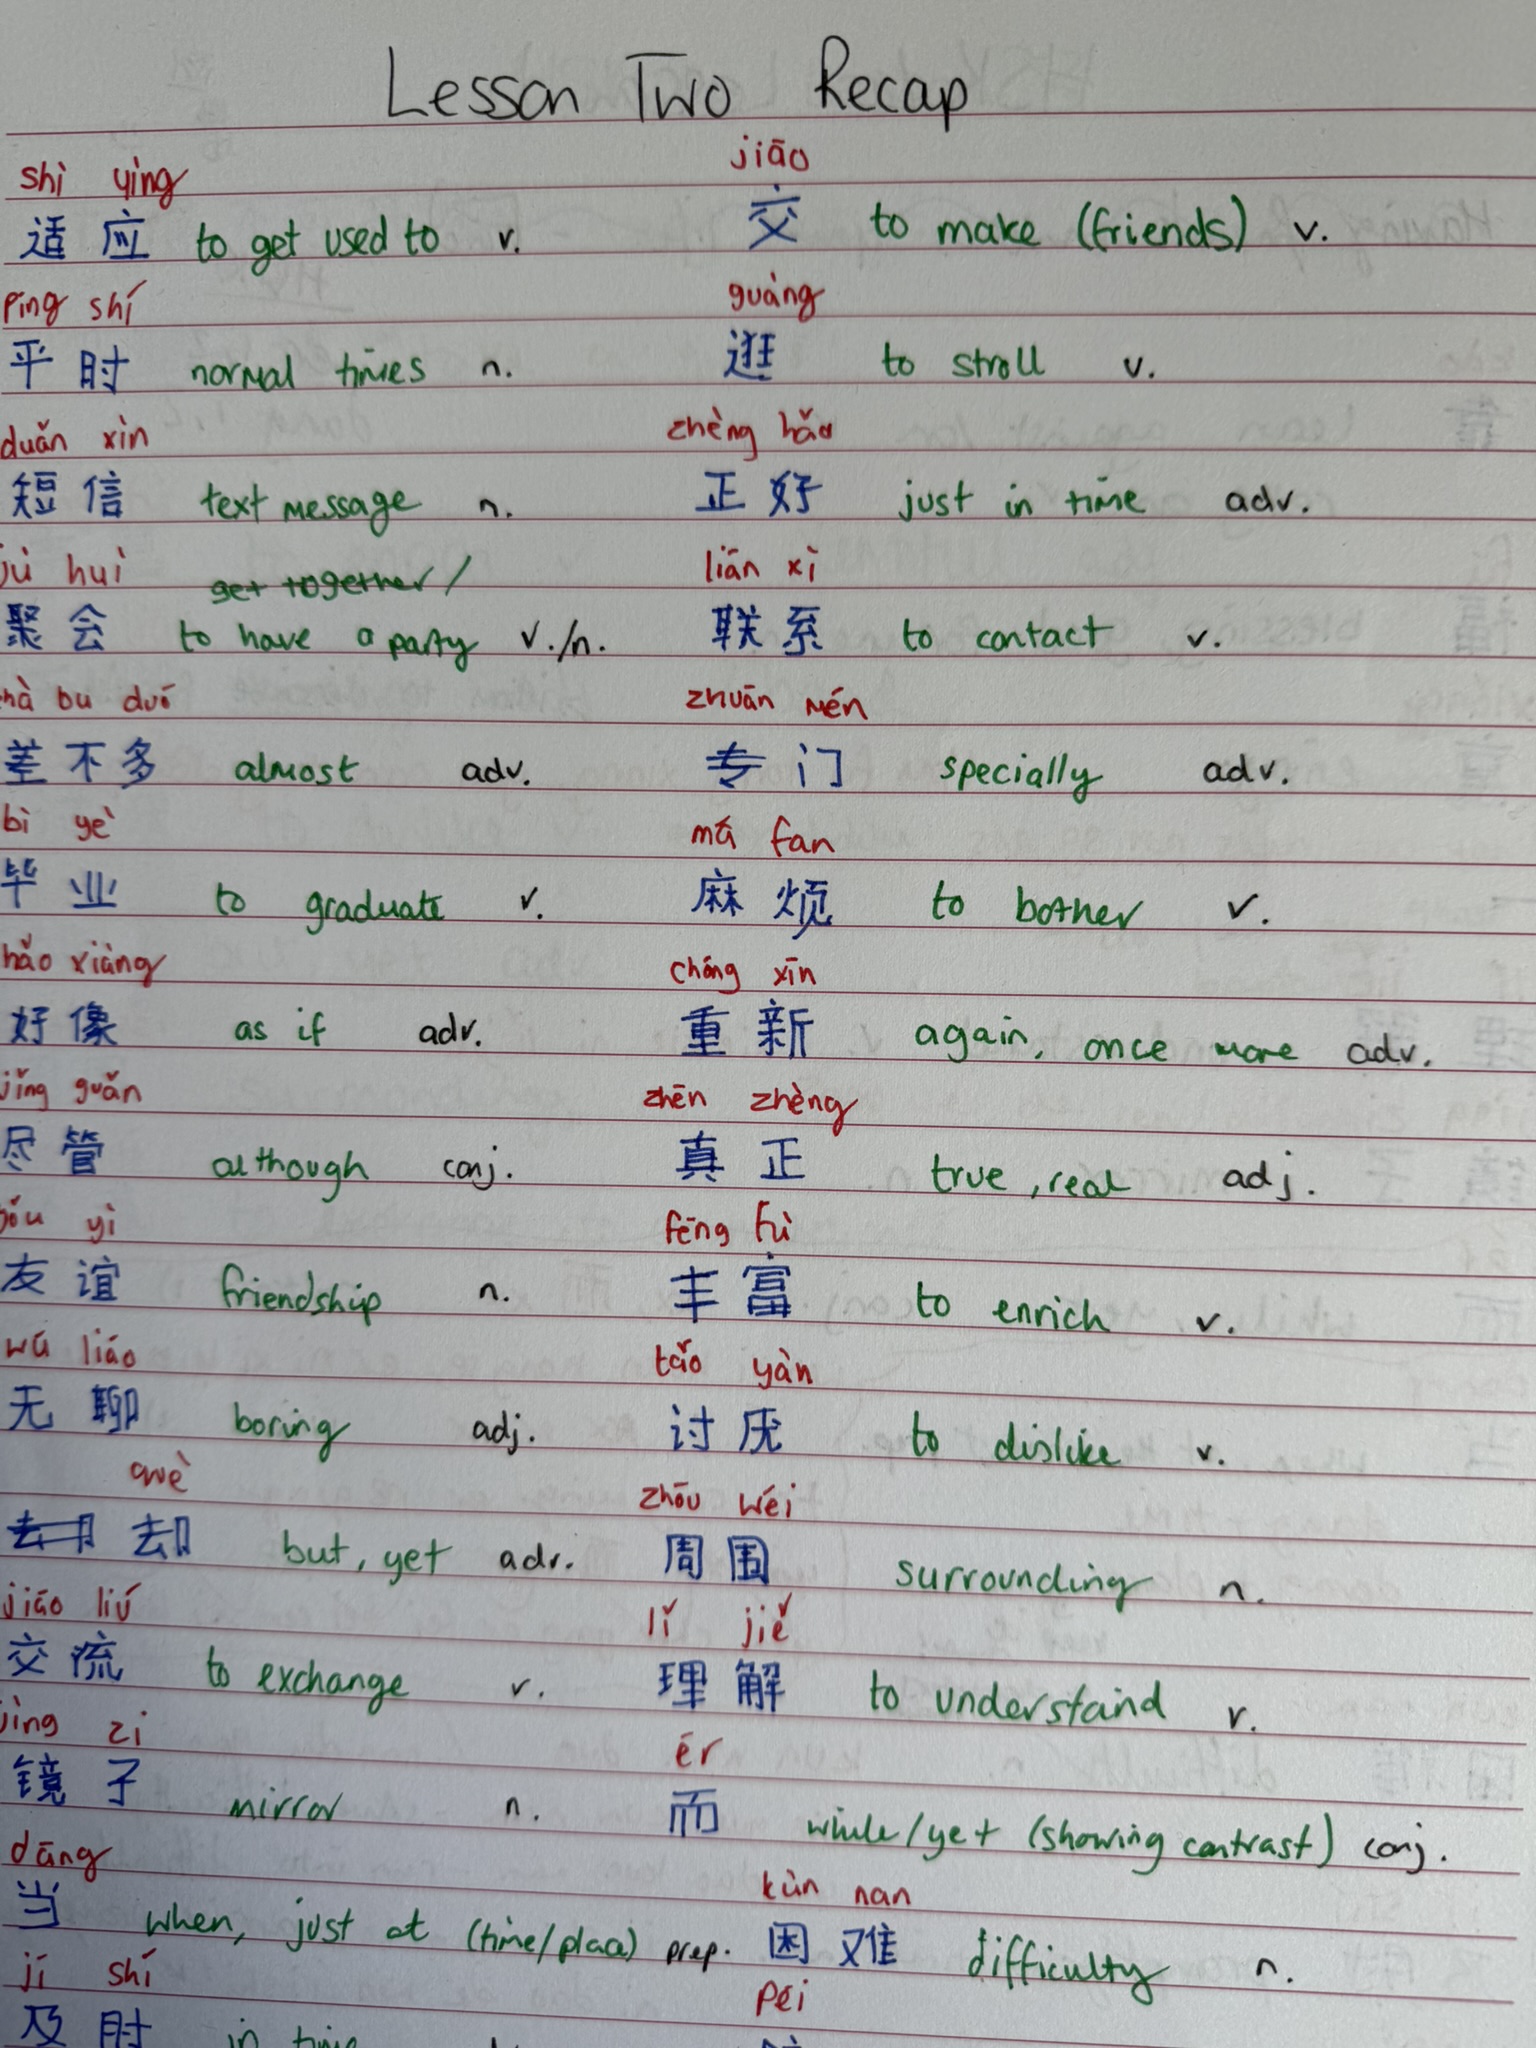 Lesson Two Recap
shì yìng jiāo
适应 to get used to v. 交 to make (friends) v.
píng shí guàng
平时 normal times n. 逛 to stroll v.
duǎn xìn zhèng hǎo
短信 text message n. 正好 just in time adv.
jù huì get together/ lián xì
聚会 to have a party v./n. 联系 to contact v.
hà bu duō zhuān mén
差不多 almost adv. 专门 specially adv.
bì yè má fan
毕业 to graduate v. 麻烦 to bother v.
hǎo xiàng chóng xīn
好像 as if adv. 重新 again, once more adv.
jǐn guǎn zhēn zhèng
尽管 although conj. 真正 true, real adj.
yǒu yì fēng fù
友谊 friendship n. 丰富 to enrich v.
wú liáo tǎo yàn
无聊 boring adj. 讨厌 to dislike v.
què zhōu wéi
却 but, yet adv. 周围 surrounding n.
jiāo liú lǐ jiě
交流 to exchange v. 理解 to understand v.
jìng zi ér
镜子 mirror n. 而 while/yet (showing contrast) conj.
dāng kùn nan
当 when, just at (time/place) prep. 困难 difficulty n.
jí shí péi
及时 in time